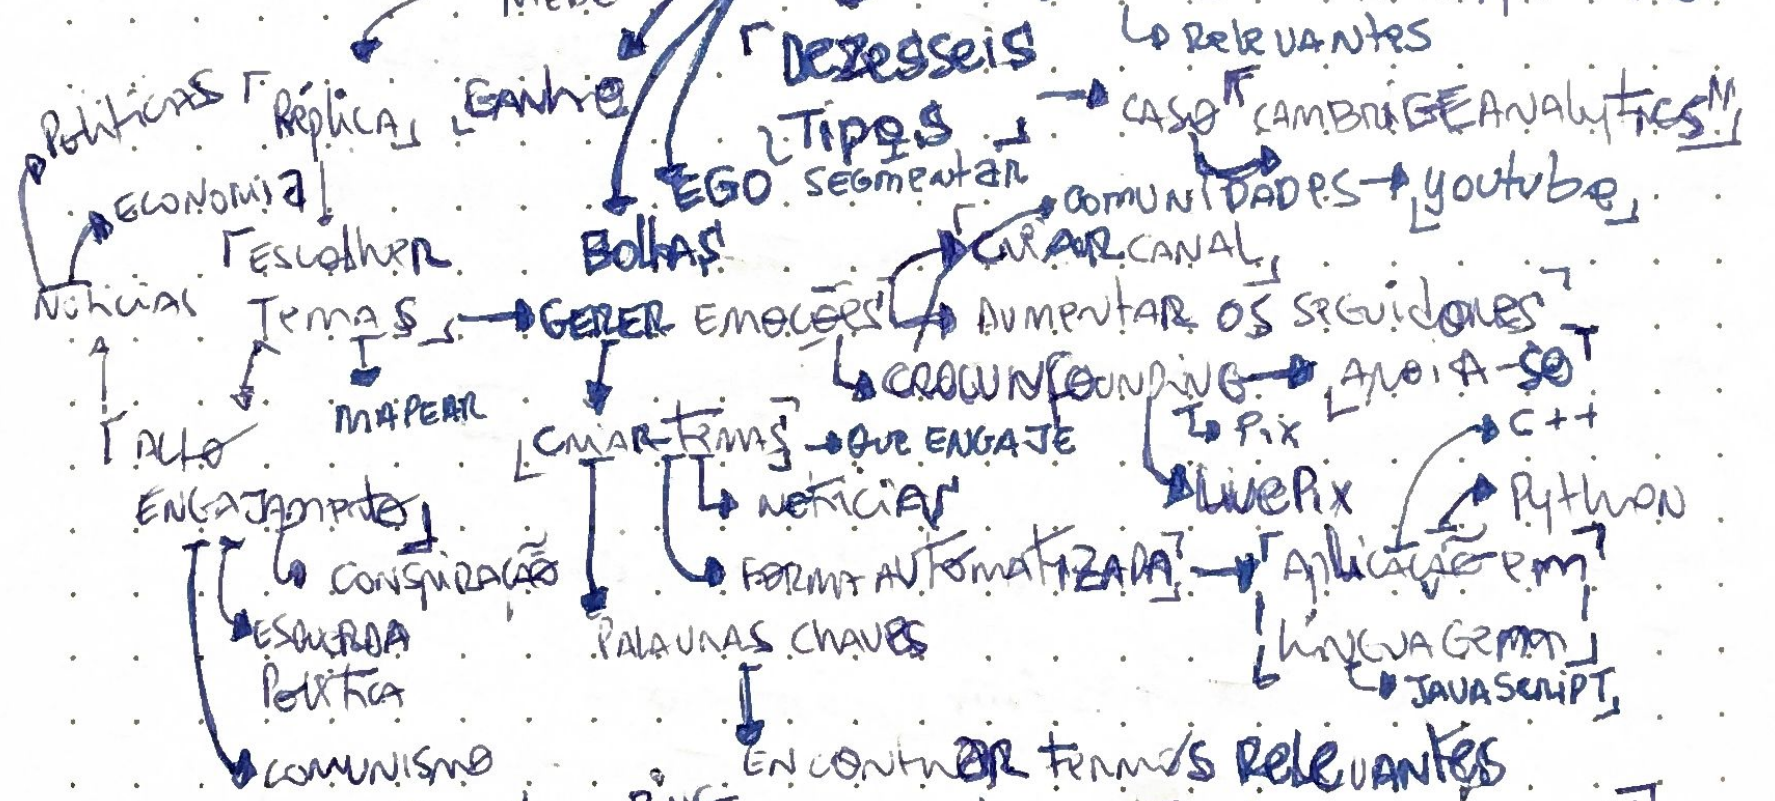 ↳ RELEVANTES
「DEZESSEIS
TIPOS」
SEGMENTAR
→ CASO "CAMBRIGEANALYTICS"
POLITICAS
「Réplica」
GANHO
ECONOMIA
EGO
COMUNIDADES → youtube
「ESCOLHER
TEMAS」
BOLHAS
CRIAR CANAL
NOTICIAS
→ GERER EMOÇÕES
AUMENTAR OS SEGUIDORES
CROWNFOUNDING → APOIA-SE
MAPEAR
PIX
C++
「ALTO
ENGAJAMENTO」
CRIAR TEMAS → QUE ENGAJE
NOTICIAS
LIVEPIX
PYTHON
CONSPIRAÇÃO
FORMA AUTOMATIZADA → 「Aplicação em
LINGUAGEM」
ESQUERDA
POLÍTICA
PALAVRAS CHAVES
JAVASCRIPT
COMUNISMO
ENCONTRAR TERMOS RELEVANTES